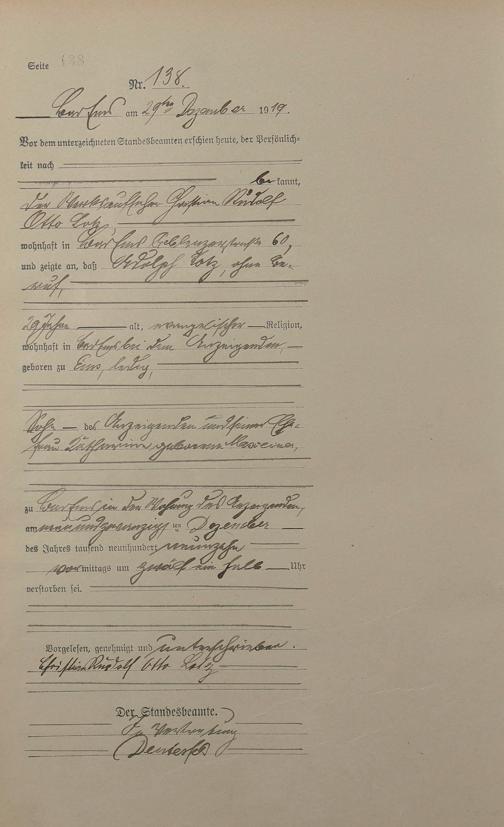 Seite 138
Nr. 138.
Bad Ems am 29ten Dezember 1919.
Vor dem unterzeichneten Standesbeamten erschien heute, der Persönlich-
keit nach
be kannt,
der Christian Rudolf
Otto Lotz,
wohnhaft in Bad Ems Coblenzerstraße 60,
und zeigte an, daß Rudolph Lotz, ohne Be-
ruf,
29 Jahre alt, evangelischer Religion,
wohnhaft in Bad Ems bei dem Anzeigenden,
geboren zu Ems, ledig,
Sohn des Anzeigenden und seiner Ehe-
frau Katharine geborene
zu Bad Ems in der Wohnung des Anzeigenden,
am neunundzwanzigsten Dezember
des Jahres tausend neunhundert neunzehn
vor mittags um zwölf ein halb Uhr
verstorben sei.
Vorgelesen, genehmigt und unterschrieben.
Christian Rudolf Otto Lotz
Der Standesbeamte.
In Vertretung